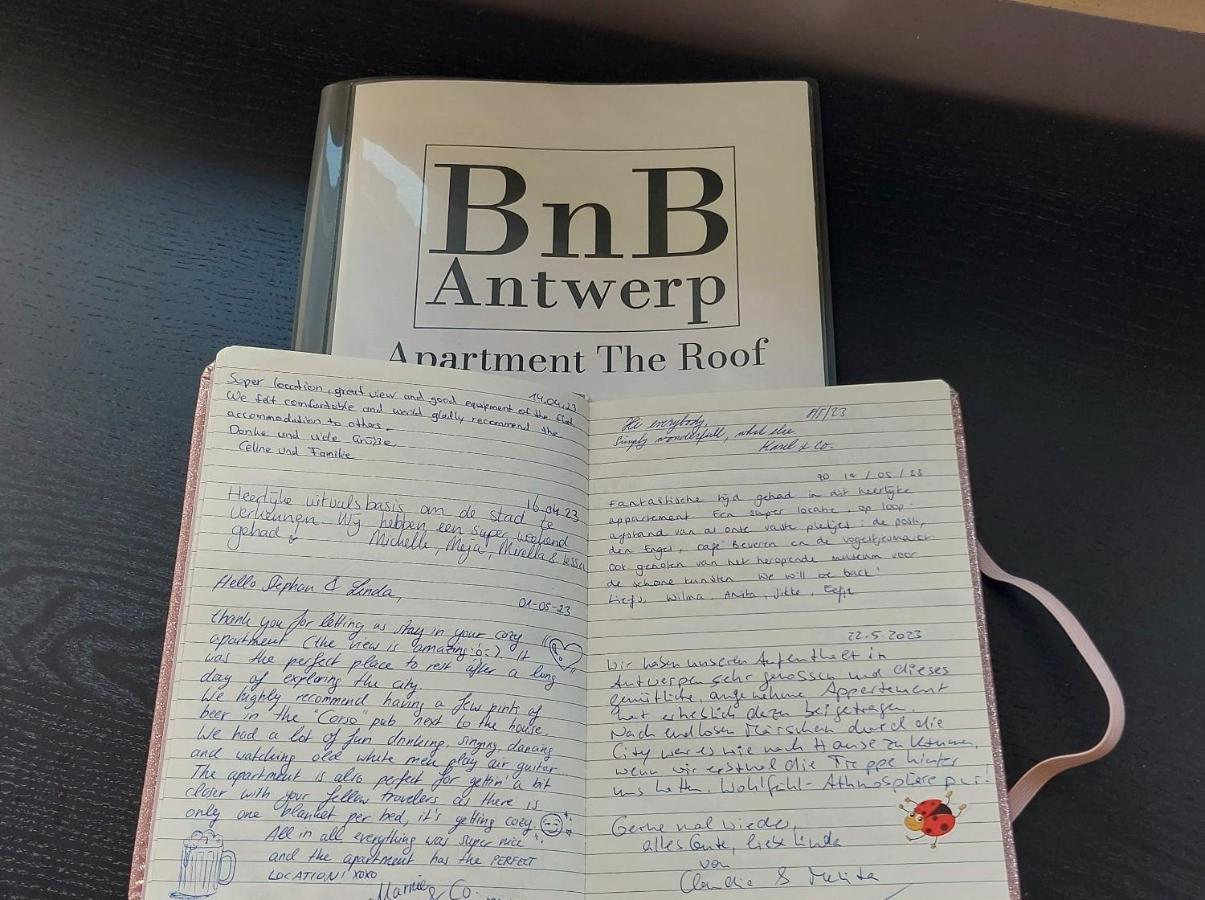 BnB
Antwerp
Apartment The Roof
14.04.23
Super location, great view and good equipment of the flat.
We felt comfortable and would gladly recommend the
accommodation to others.
Danke und viele Grüße,
Celine und Familie
16-04-23
Heerlijke uitvalsbasis om de stad te
verkennen. Wij hebben een super weekend
gehad
Michelle, Meja, Mirella &
Hello Stephan & Linda,
01-05-23
thank you for letting us stay in your cozy
apartment (the view is amazing :o:). It
was the perfect place to rest after a long
day of exploring the city.
We highly recommend having a few pints of
beer in the "Corso" pub next to the house.
We had a lot of fun drinking, singing, dancing
and watching old white men play air guitar.
The apartment is also perfect for gettin' a bit
closer with your fellow travelers as there is
only one blanket per bed, it's getting cozy
All in all, everything was super nice
and the apartment has the PERFECT
LOCATION! XOXO
& Co.
Hi everybody,
Simply wonderfull, what else
Karel & Co.
14/05/23
Fantastische tijd gehad in dit heerlijke
appartement. Een super locatie, op loop-
afstand van al onze vaste plekjes: de
den Engel, café Beveren en de vogeltjesmarkt
Ook genoten van het heropende museum voor
de schone kunsten. We will be back!
Liefs, Wilma, Anita,
22.5.2023
Wir haben unseren Aufenthalt in
Antwerpen sehr genossen und dieses
gemütliche, angenehme Appartement
hat erheblich dazu beigetragen.
Nach endlosen Märschen durch die
City war es wie nach Hause zu kommen,
wenn wir erstmal die Treppe hinter
uns hatten. Wohlfühl-Athmosphäre pur!
Gerne mal wieder,
alles Gute, liebe Linda
von
Claudia & Melita